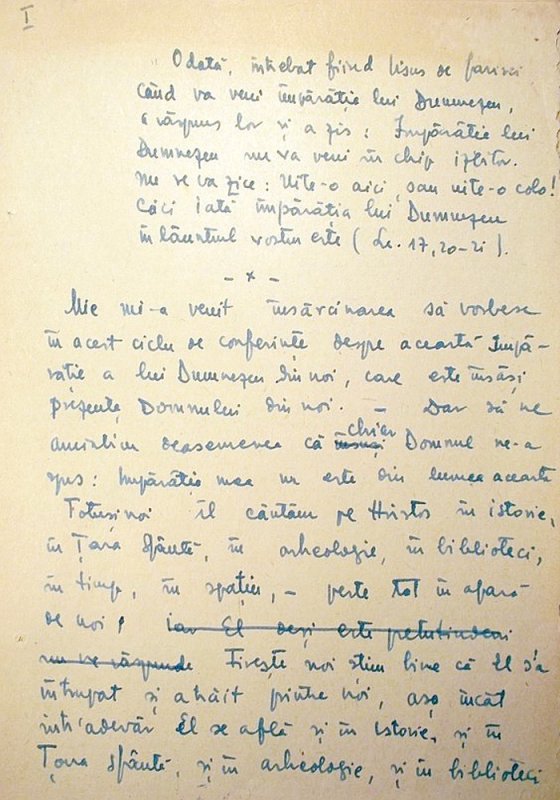 I
Odată, întrebat fiind Iisus de farisei
când va veni împărăția lui Dumnezeu,
a răspuns lor și a zis: Împărăția lui
Dumnezeu nu va veni în chip izbitor.
nu se va zice: Uite-o aici, sau uite-o colo!
Căci iată împărăția lui Dumnezeu
în lăuntrul vostru este (Lc. 17, 20-21).
- * -
Mie mi-a venit însărcinarea să vorbesc
în acest ciclu de conferințe despre această Împă-
răție a lui Dumnezeu din noi, care este însăși
prezența Domnului din noi. - Dar să ne
chiar
amintim deasemenea că însuși Domnul ne-a
spus: Împărăția mea nu este din lumea aceasta
Totuși noi îl căutăm pe Hristos în istorie,
în Țara Sfântă, în arheologie, în biblioteci,
în timp, în spațiu, - peste tot în afară
de noi! iar El deși este pretutindeni
nu ne răspunde Firește noi știm bine că El s'a
întrupat și a trăit printre noi, așa încât
într'adevăr El se află și în istorie, și în
Țara Sfântă, și în arheologie, și în biblioteci